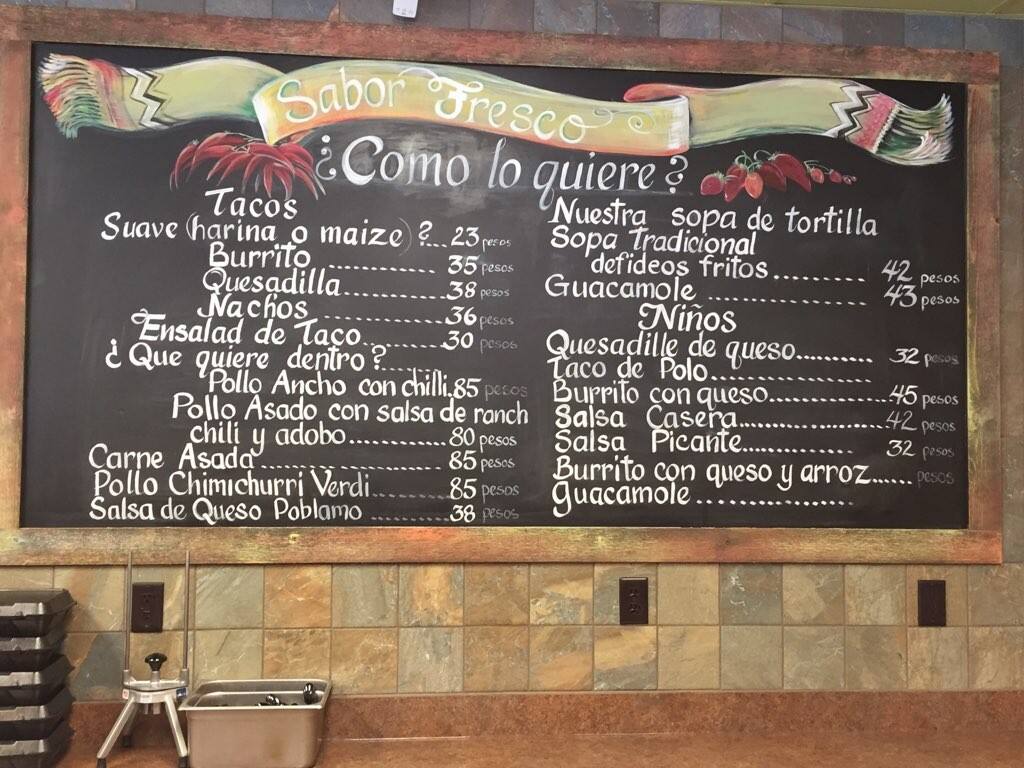 Sabor Fresco
¿Como lo quiere?
Tacos
Suave (harina o maize)?... 23 pesos
Burrito ................ 35 pesos
Quesadilla............. 38 pesos
Nachos ................ 36 pesos
Ensalad de Taco......... 30 pesos
¿Que quiere dentro?........
Pollo Ancho con chilli.85 pesos
Pollo Asado con salsa de ranch
chili y adobo............ 80 pesos
Carne Asada..................... 85 pesos
Pollo Chimichurri Verdi........ 85 pesos
Salsa de Queso Poblamo ......... 38 pesos
Nuestra sopa de tortilla
Sopa Tradicional
defideos fritos............ 42 pesos
Guacamole .................... 43 pesos
Niños
Quesadille de queso.......... 32 pesos
Taco de Polo....................
Burrito con queso............. 45 pesos
Salsa Casera.................. 42 pesos
Salsa Picante................ 32 pesos
Burrito con queso y arroz...... pesos
guacamole ....................